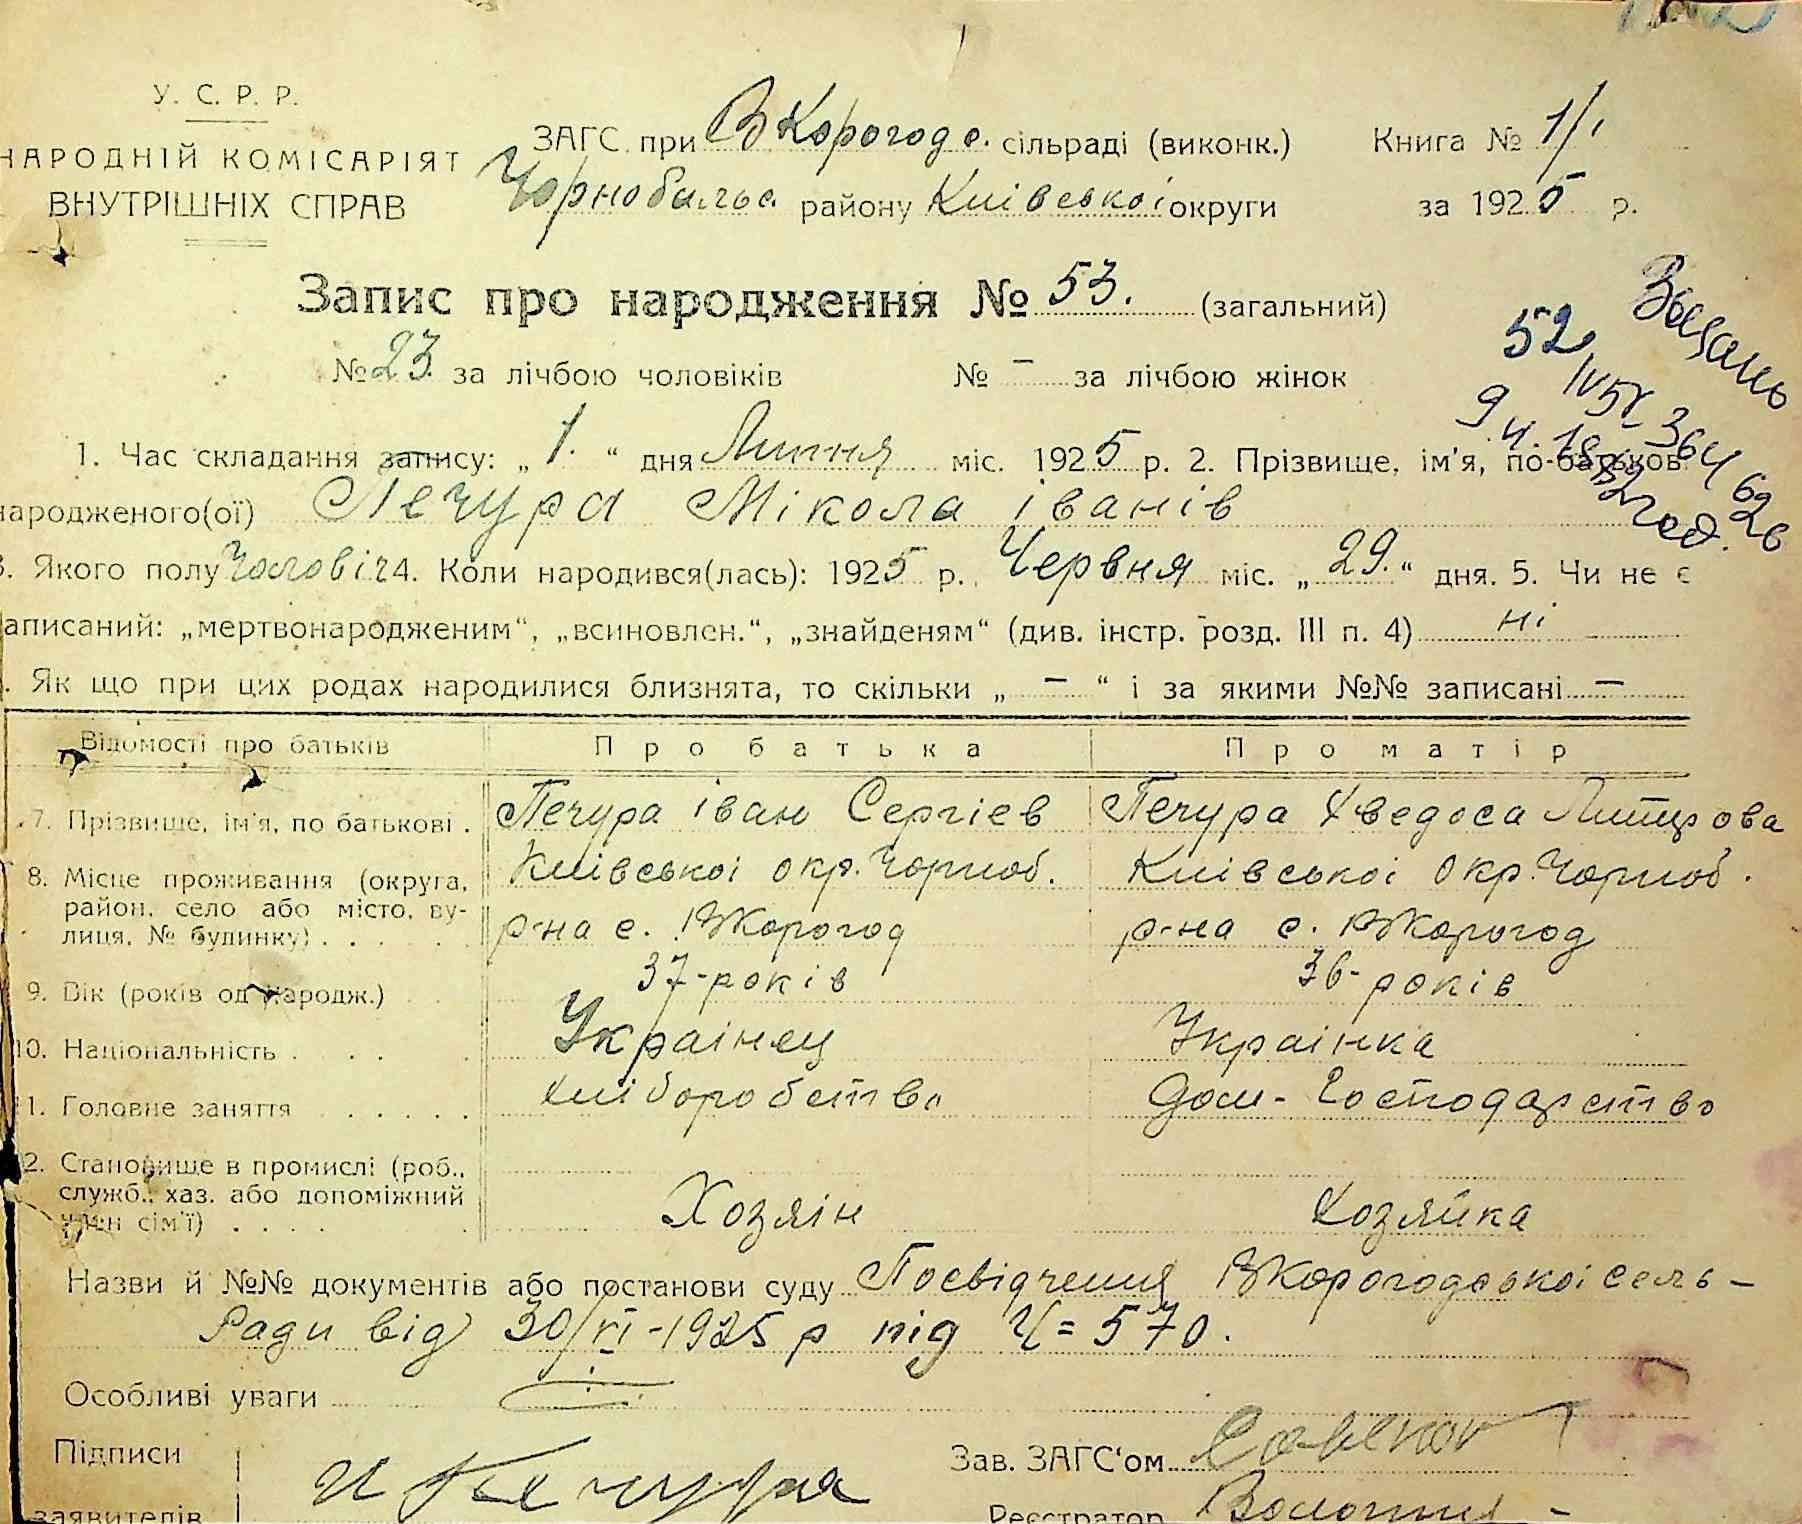 У. С. Р. Р.
НАРОДНІЙ КОМІСАРІЯТ
ВНУТРІШНІХ СПРАВ
ЗАГС при В Корогодс. сільраді (виконк.)
Чорнобильс. району Київської округи
Книга № 1/1
за 1925 р.
Запис про народження № 53. (загальний)
№ 23. за лічбою чоловіків № – за лічбою жінок
52
1. Час складання запису: „ 1. “ дня Липня міс. 1925 р. 2. Прізвище, ім'я, по-батьков
народженого(ої) Печура Мікола Іванів
3. Якого полу Чоловіч 4. Коли народився(лась): 1925 р. Червня міс. „ 29. “ дня. 5. Чи не є
аписаний: „мертвонародженим“, „всиновлен.“, „знайденям“ (див. інстр. розд. III п. 4) ні
. Як що при цих родах народилися близнята, то скільки „ – “ і за якими №№ записані –
Відомості про батьків Про батька Про матір
7. Прізвище, ім'я, по батькові . Печура Іван Сергіев Печура Хведоса Митрова
8. Місце проживання (округа, Київської окр. Чорноб. Київської Окр. Чорноб.
район, село або місто, ву-
лиця, № будинку) . . . . . р-на с. ВКорогод р-на с. ВКорогод
9. Вік (років од народж.) 37-років 36-років
10. Національність . . . Українец Українка
11. Головне заняття . . . . . . хліборобство Дом-Господарство
12. Становище в промислі (роб.,
служб., хаз. або допоміжний
член сім'ї) . . . . Хозяін Хозяйка
Назви й №№ документів або постанови суду Посвідчення ВКорогодської сель-
Ради від 30/VI-1925 р під Ч= 570.
Особливі уваги
Підписи
заявителів И Печура
Зав. ЗАГС'ом
Реєстратор